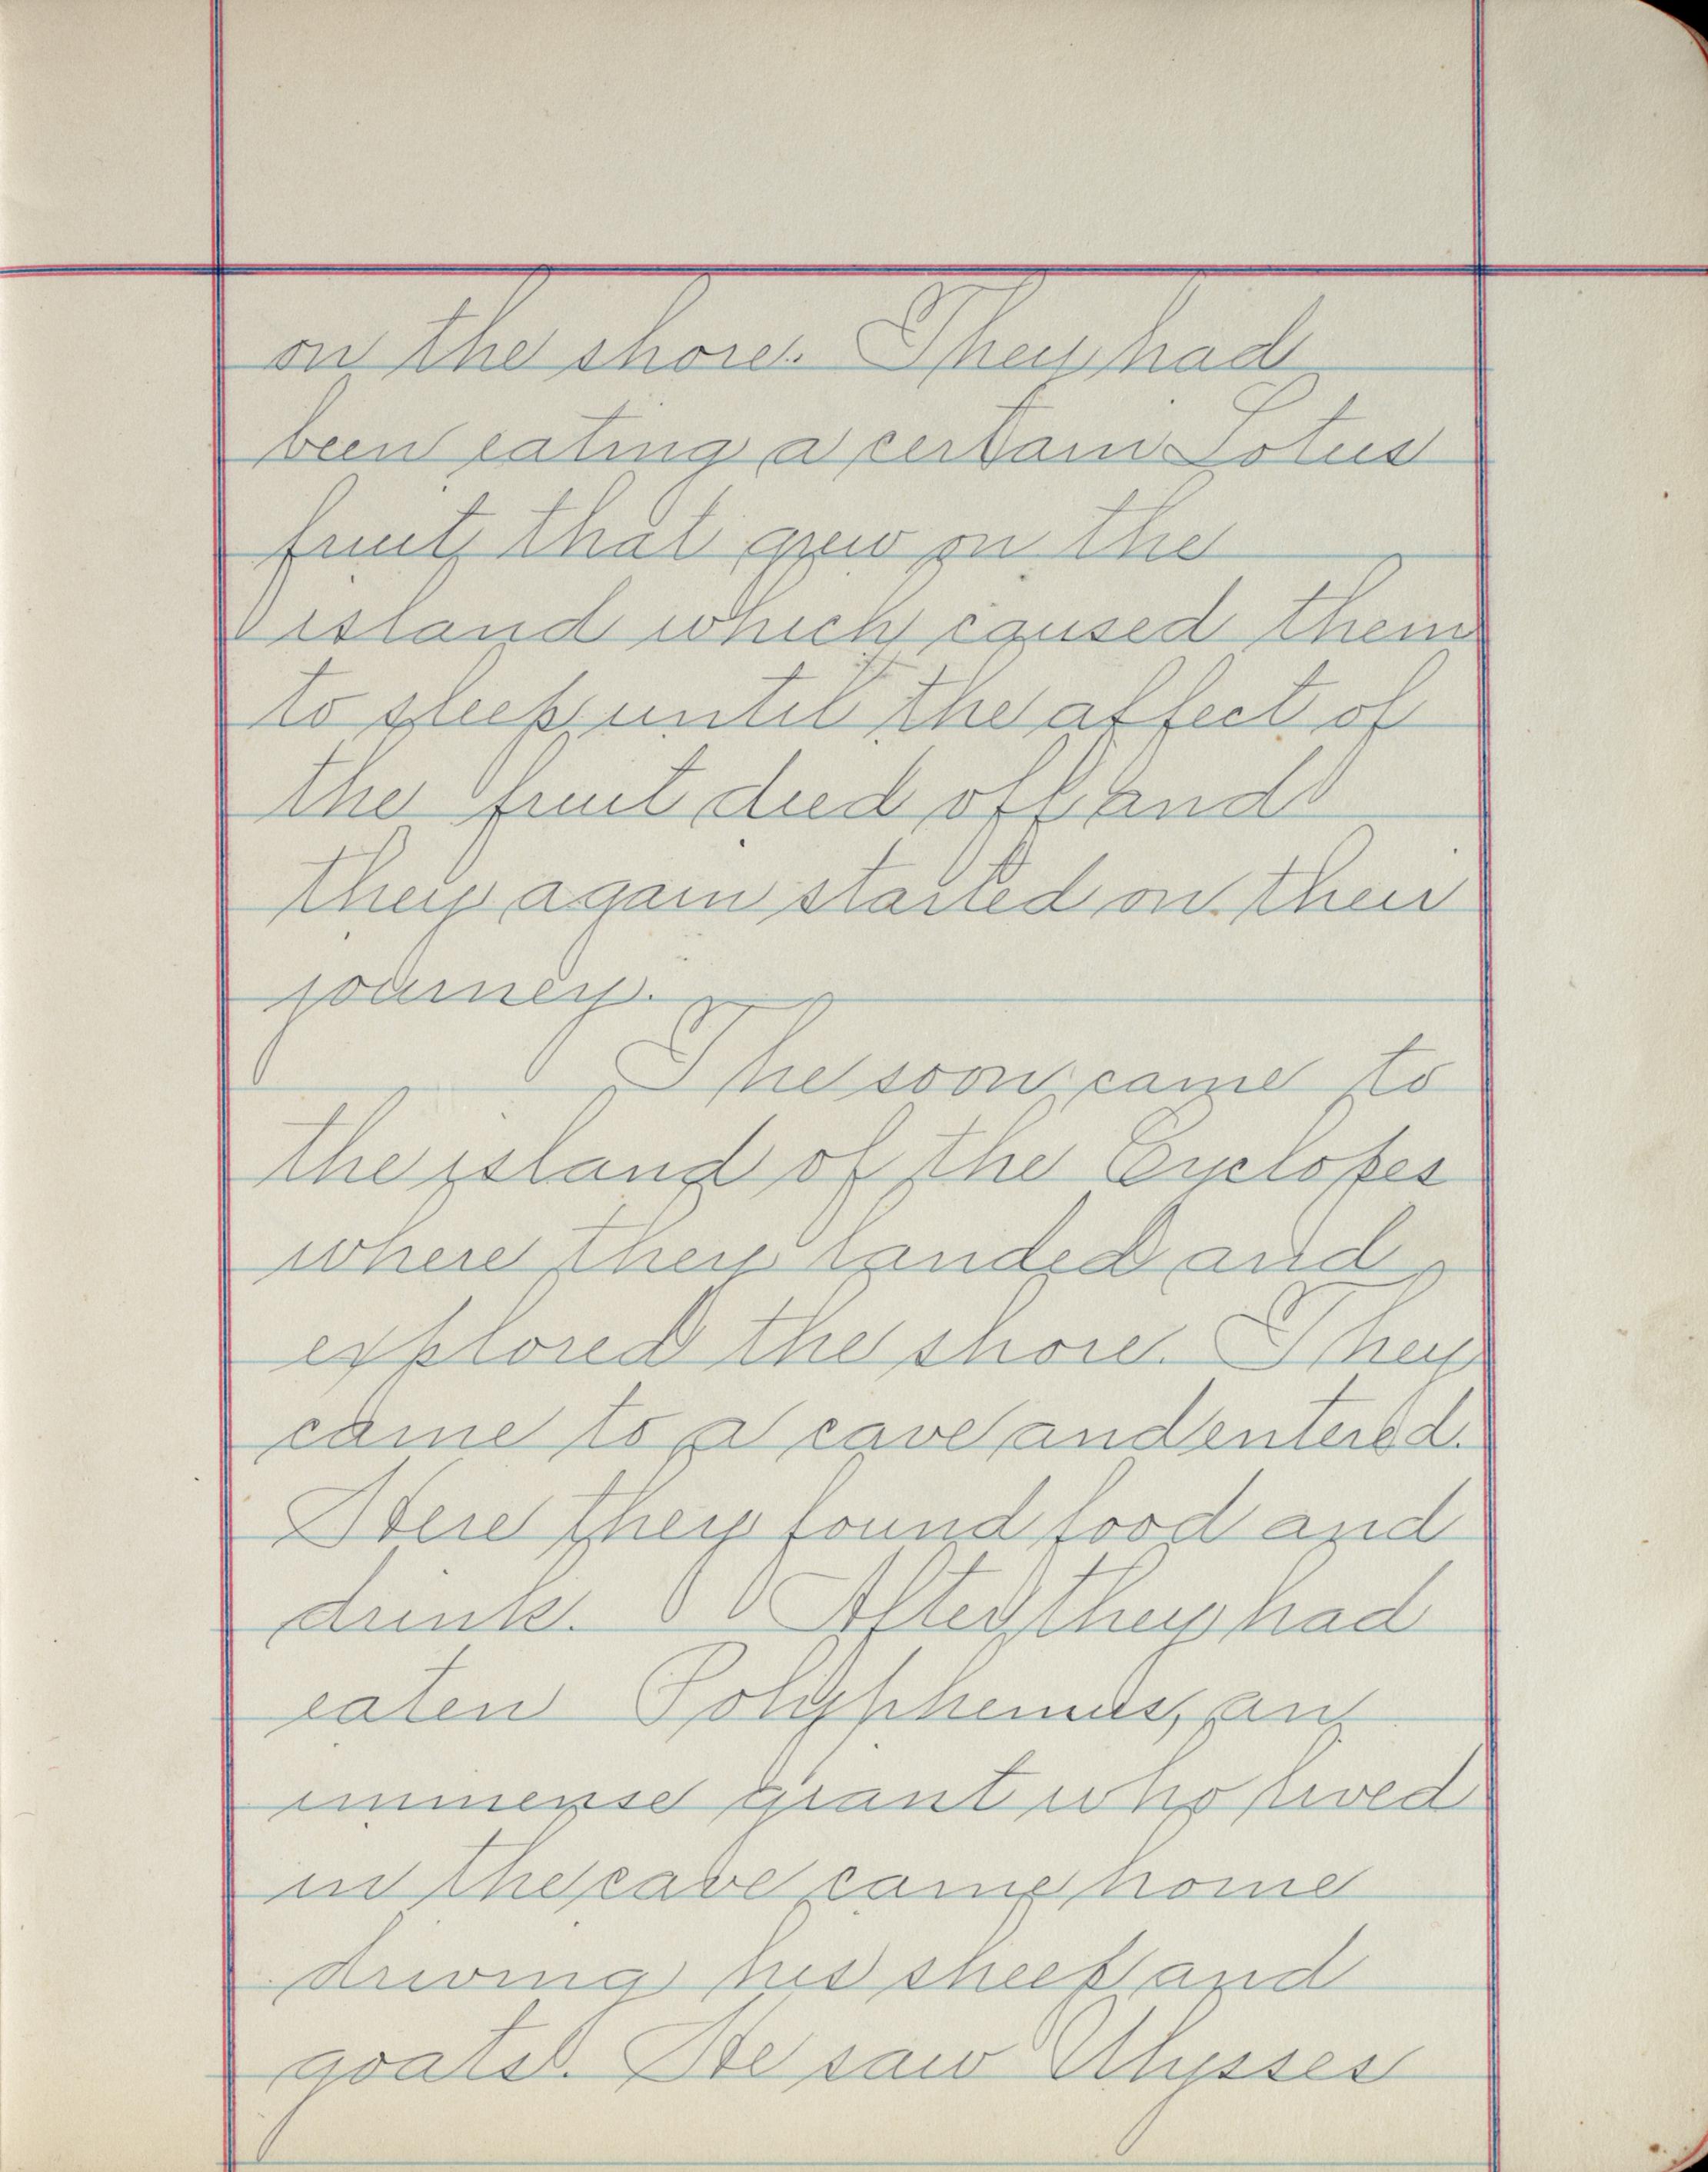 on the shore. They had
been eating a certain Lotus
fruit that grew on the
island which caused them
to sleep until the affect of
the fruit died off and
they again started on their
journey.
The soon came to
the island of the Cyclopes
where they landed and
explored the shore. They
came to a cave and entered.
Here they found food and
drink. After they had
eaten Polyphemus, an
immense giant who lived
in the cave came home
driving his sheep and
goats. He saw Ulysses